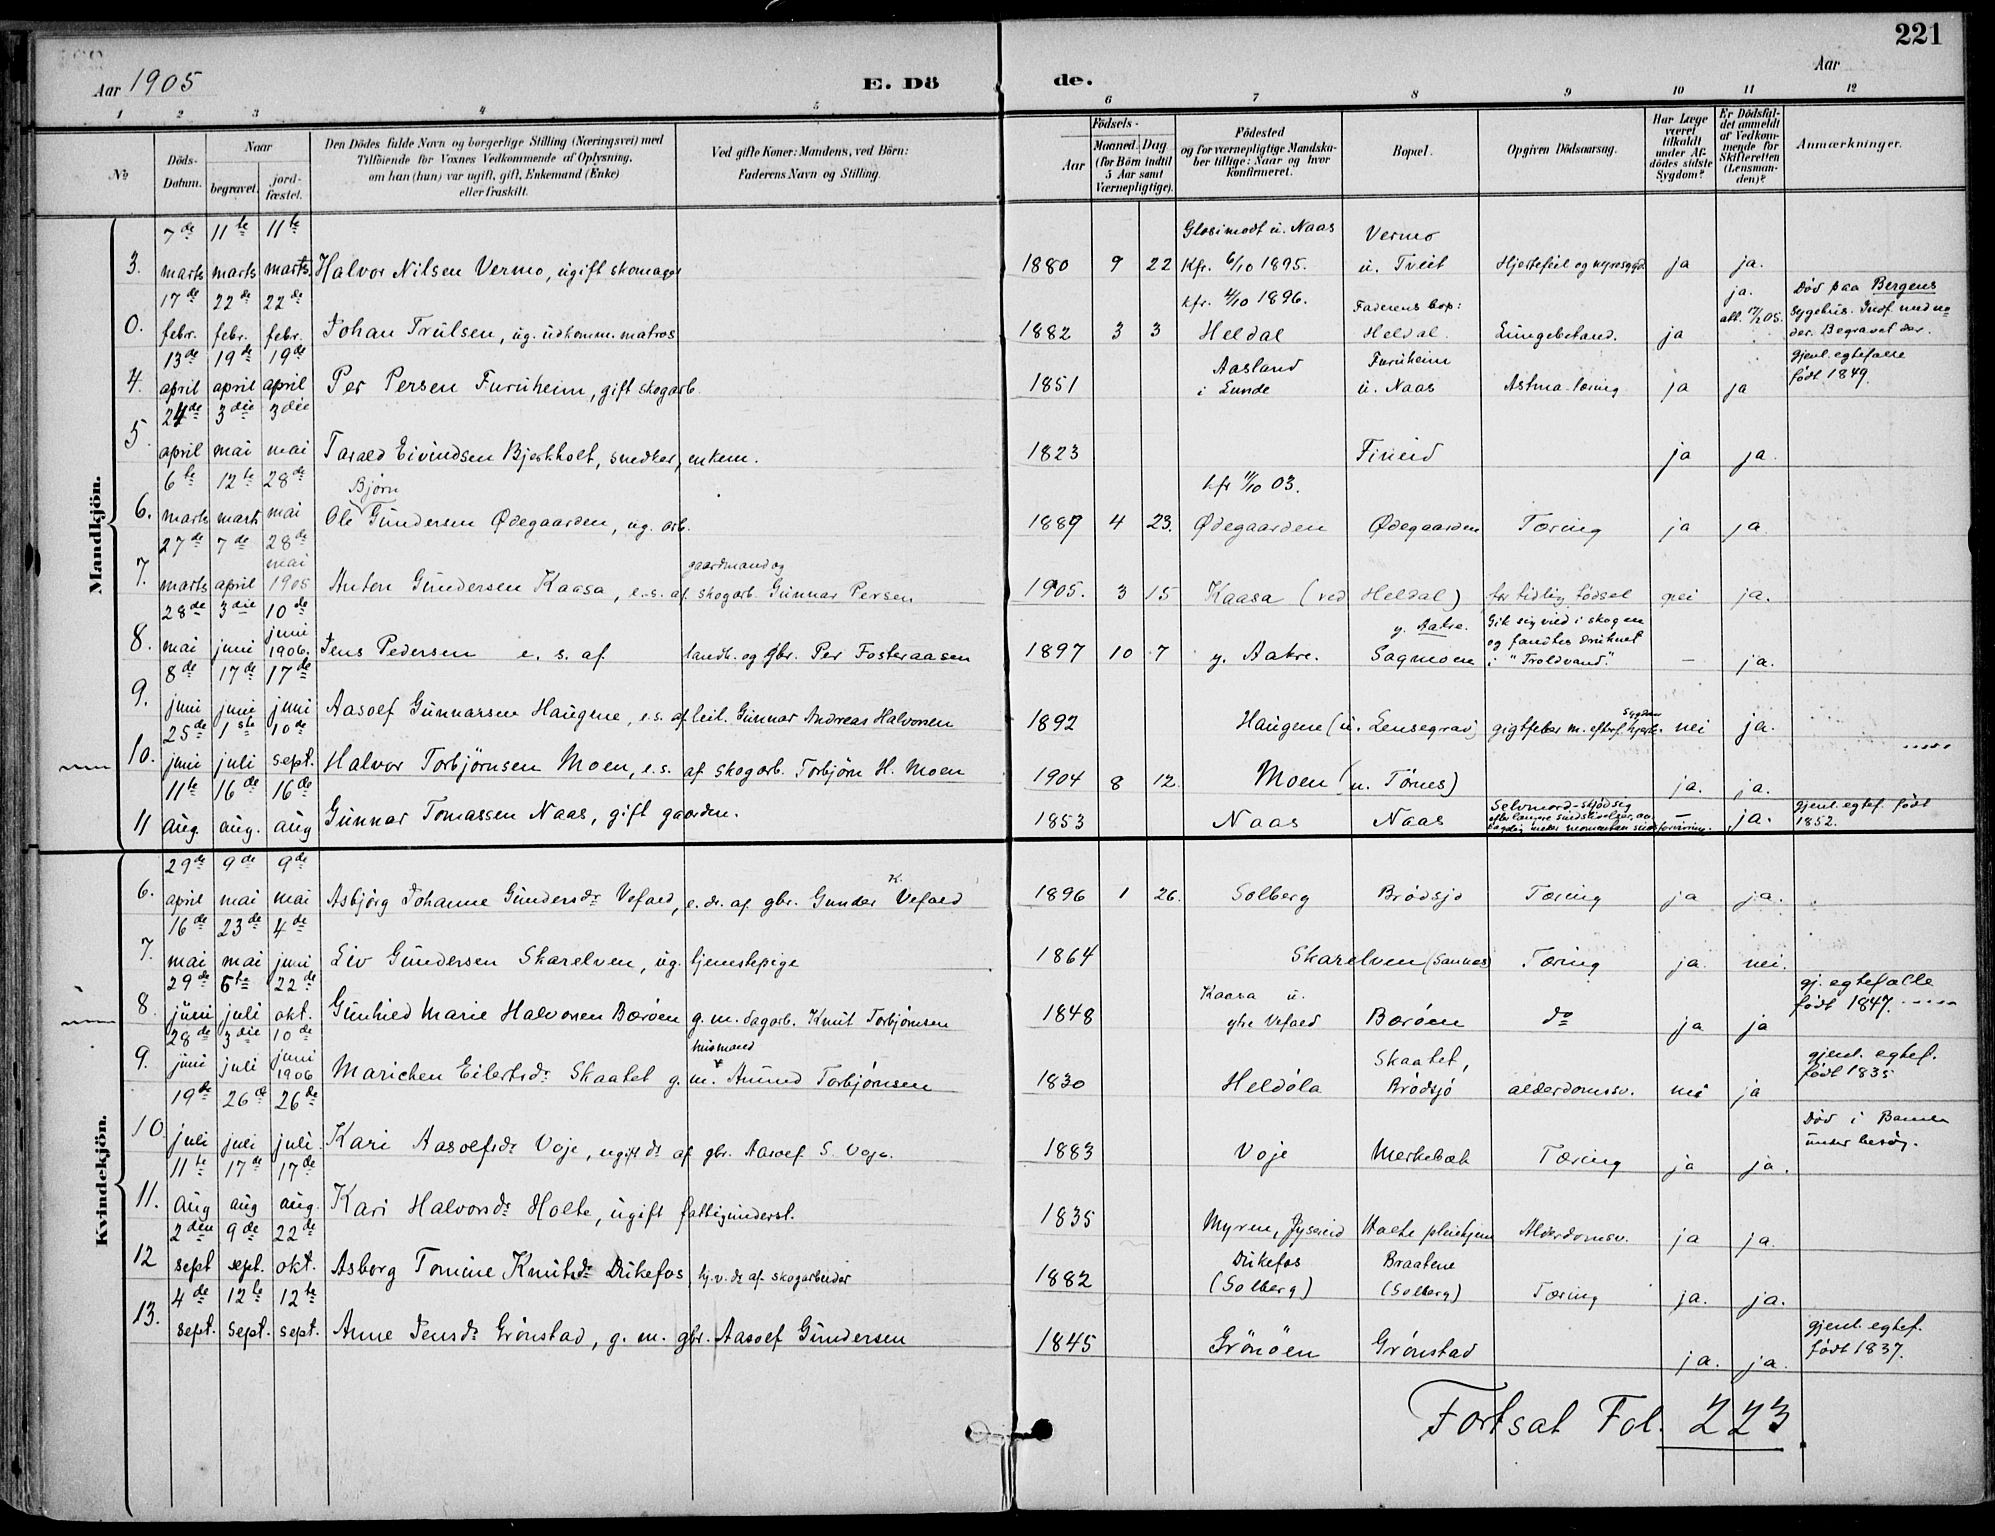 221
Aar 1905
E. Döde.
Aar
1 2 3 4 5 6 7 8 9 10 11 12
No
Döds-Datum.
Naar
begravet.
jord-fæstet.
Den Dödes fulde Navn og borgerlige Stilling (Næringsvei) med
Tilföiende for Voxnes Vedkommende af Oplysning,
om han (hun) var ugift, gift, Enkemand (Enke)
eller fraskilt.
Ved gifte Koner: Mandens, ved Börn:
Faderens Navn og Stilling.
Födsels-
Aar
Maaned. Dag
(for Börn indtil
5 Aar samt
Værnepligtige).
Födested
og for værnepligtige Mandska-
ber tillige: Naar og hvor
konfirmeret.
Bopæl.
Opgiven Dödsaarsag.
Har Læge
været
tilkaldt
under Af-
dödes sidste
Sygdom?
Er Dödsfal-
det anmeldt
af Vedkom-
mende for
Skifteretten
(Lensman-
den)?
Anmærkninger.
Mandkjön.
7de 11te 11te Glosimodt u. Naas Vermo
3. marts marts marts. Halvor Nilsen Vermo, ugift skomager 1880 9 22 Kfr. 6/10 1895. u. Tveit Hjertefeil og nyresygd. ja ja.
17de 22de 22de kfr. 4/10 1896. Faderens bop: ja. Død paa Bergens
0. febr. febr. febr. Johan Trulsen, ug. udkomm. matros 1882 3 3 Heldal Heldal. Lungebetænd. ja Sygehus.
der. Begravet der.
13de 19de 19de Aasland Furuheim gjenl. egtefælle
4. april april april Per Persen Furuheim, gift skogarb. 1851 i Lunde u. Naas Astma-tæring ja ja født 1849.
24de 3die 3die
5. april mai mai Tarald Eivindsen Bjerkholt, snedker, enkem. 1823 Fineid ja ja.
6te 12te 28de Bjørn kfr 11/10 03.
6. marts marts mai Ole Gundersen Ødegaarden, ug. arb. 1889 4 23. Ødegaarden Ødegaarden Tæring ja ja.
27de 7de 28de mai gaardmand og
7. marts april 1905 Anton Gundersen Kaasa, e.s. af skogarb. Gunnar Persen 1905. 3 15 Kaasa (ved Heldal) for tidlig fødsel nei ja.
28de 3die 10de juni y. Aakre. Gik sig vild i skogen
8. mai juni 1906. Jens Pedersen e. s. af landb. og gbr. Per Fosteraasen 1897 10 7 y. Aakre. Sagmoen og fandtes druknet
i "Troldvand". – ja.
8de 17de 17de
9. juni juni juni Aasolf Gunnarsen Haugene, e.s. af leil. Gunnar Andreas Halvorsen 1892 Haugene (u. Lensegrav) gigtfeber m. efterf. hjerte. sygdom nei ja.
25de 1ste 10de
10. juni juli sept. Halvor Torbjørnsen Moen, e.s. af skogarb. Torbjørn H. Moen 1904 8 12. Moen (u. Tørnes) ja. ja.
11te 16de 16de Selvmord-skjød sig gjenl. egtef. født
11 aug. aug. aug Gunnar Tomassen Naas, gift gaardm. 1853 Naas Naas – ja. 1852.
Kvindekjön.
29de 9de 9de K.
6. april mai mai Asbjørg Johanne Gundersdr Vefald, e. dr. af gbr. Gunder Vefald 1896 1 26. Solberg Brødsjø Tæring ja ja.
16de 23de 4de
7. mai mai juni Liv Gundersen Skarelven, ug. tjenestepige 1864 Skarelven (Sannes) Tæring ja. nei.
29de 6te 22de Kaasa u. gj. egtefælle
8. juni juli okt. Gunhild Marie Halvorsen Bærøen g. m. dagarb. Knut Torbjørnsen 1848 ytre Vefald Bærøen do ja ja født 1847.
28de 3die 10de juni husmand Skaatet, gjenl. egtef.
9. juni juli 1906 Marichen Eilertsdr Skaatet g. m. Amund Torbjørnsen 1830 Heldøla Brødsjø alderdomssv. nei ja født 1835
19de 26de 26de Død i Bamle
10. juli juli juli. Kari Aasolfsdr Voje, ugift dr af gbr. Aasolf S. Voje. 1883 Voje Merkebæk Tæring ja ja. under besøg.
11te 17de 17de
11. aug aug aug. Kari Halvorsdr Holte, ugift fattigunderst. 1835 Myren, Jyseied Holte pleiehjem Alderdomsv. ja ja.
2den 9de 22de Dikefos Braatene
12 sept sept. okt. Asborg Tomine Knutsdr Dikefos, tj. v. dr af skogarbeider 1882 (Solberg) (Solberg) Tæring ja. ja.
4de 12te 12te gjenl. egtef.
13. sept. sept. sept. Anne Jensdr Grønstad, g. m. gbr. Aasolf Gundersen 1845 Grönöen Grønstad ja. ja. født 1837.
Fortsat Fol. 223.